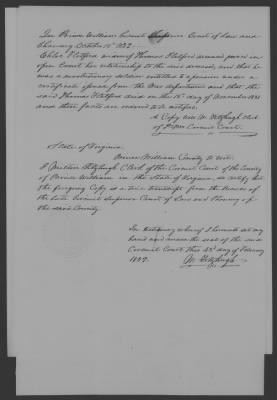 In Prince William Circuit Superior Court of Law and
Chancery October 15th 1832
Chloe Flatford widow of Thomas Flatford deceased proved in
open Court her relationship to the said deceased, and that he
was a revolutionary soldier entitled to a pension under a
certificate issued from the War department and that the
said Thomas Flatford died on the 15th day of November 1831
and these facts are ordered to be certified.
A Copy Teste M. Fitzhugh Clerk
of P. Wm Circuit Court.
State of Virginia.
Prince William County to wit:
I Clerk of the Circuit Court of the County
of Prince William in the State of Virginia, do certify that
the foregoing Copy is a true transcript from the Records of
the late Circuit Superior Court of Law and Chancery of
the said County.
In testimony whereof I hereunto set my
hand and annex the seal of the said
Circuit Court this day of February
M. Fitzhugh